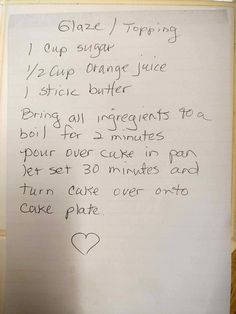 Glaze / Topping
1 cup sugar
1/2 cup orange juice
1 stick butter
Bring all ingredients to a
boil for 2 minutes
pour over cake in pan
let set 30 minutes and
turn cake over onto
cake plate.